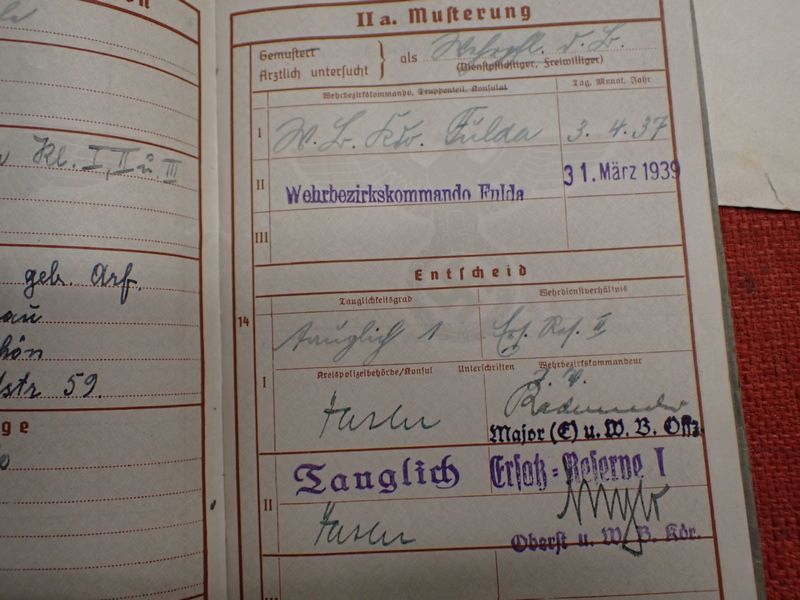 Kl. I, II u. III
geb. Arf.
59.
II a. Musterung
Gemustert
Ärztlich untersucht } als Wehrpfl. d. B.
(Dienstpflichtiger, Freiwilliger)
Wehrbezirkskommando, Truppenteil, Konsulat
Tag, Monat, Jahr
I W. B. Kdo. Fulda 3. 4. 37
II Wehrbezirkskommando Fulda 31. März 1939
III
Entscheid
14
Tauglichkeitsgrad Wehrdienstverhältnis
tauglich 1 Ers. Res. II
Kreispolizeibehörde/Konsul Unterschriften Wehrbezirkskommandeur
I
Major (E) u. W. B. Offz.
II Tauglich Ersatz-Reserve I
Oberst u. W. B. Kdr.